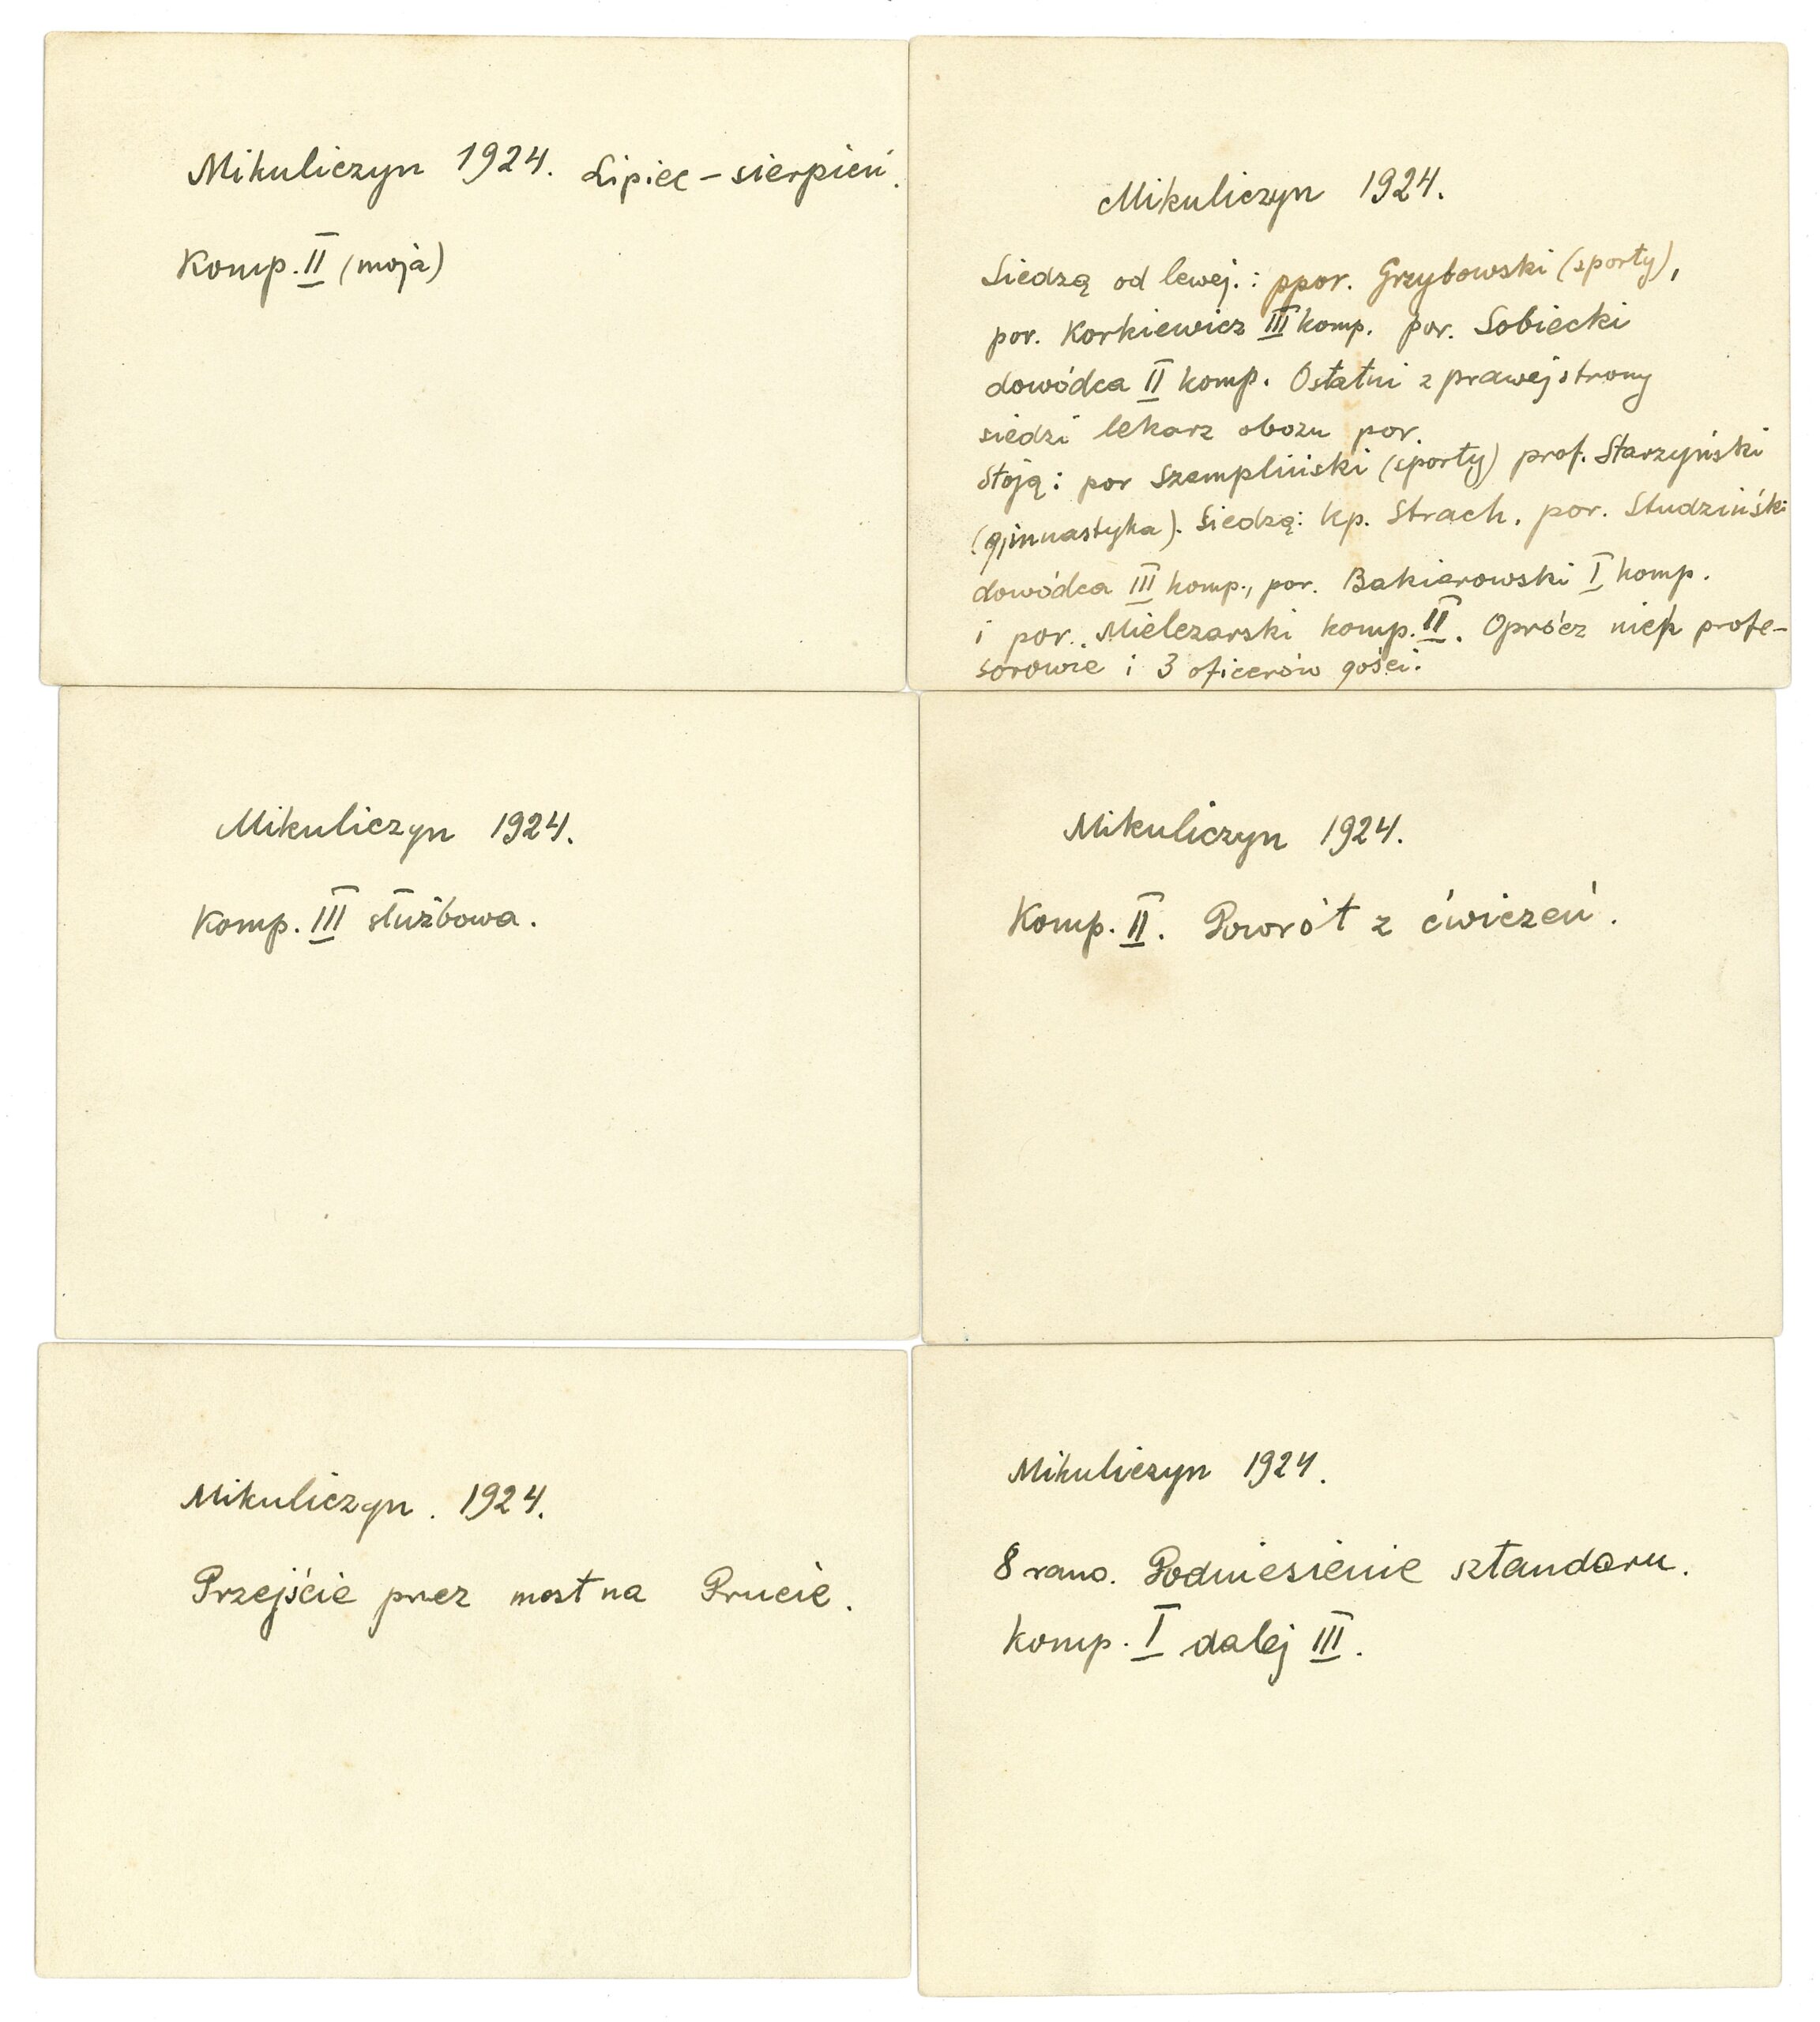 Mikuliczyn 1924. Lipiec – sierpień.
Komp. II (moja)
Mikuliczyn 1924.
Siedzą od lewej.: ppor. Grzybowski (sporty),
por. Korkiewicz III komp. por. Sobiecki
dowódca II komp. Ostatni z prawej strony
siedzi lekarz obozu por.
Stoją: por Szempliński (sporty) prof. Starzyński
(gimnastyka). Siedzą: kp. Strach, por. Studziński
dowódca III komp., por. Bakierowski I komp.
i por. Mielczarski komp. II. Oprócz nich profe-
sorowie i 3 oficerów gości.
Mikuliczyn 1924.
Komp. III służbowa.
Mikuliczyn 1924.
Komp. II. Powrót z ćwiczeń.
Mikuliczyn. 1924.
Przejście przez most na Prucie.
Mikuliczyn 1924.
8 rano. Podniesienie sztandaru.
Komp. I dalej III.